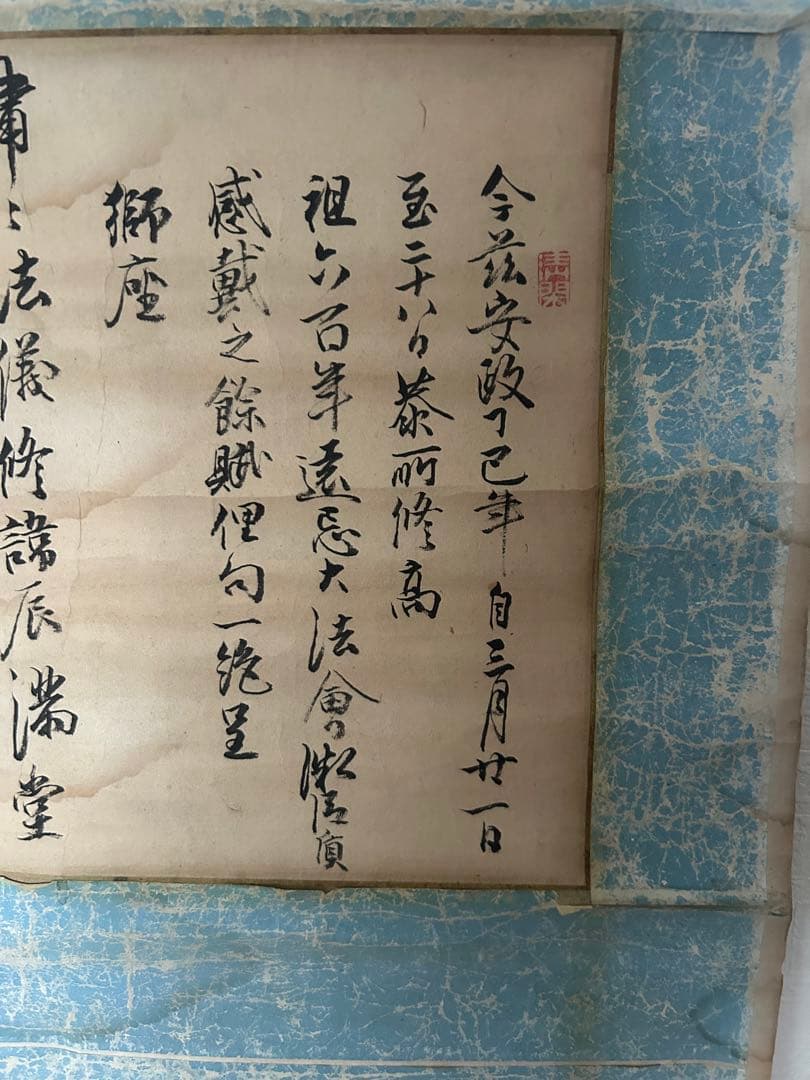 今茲安政丁巳年自三月廿一日
至二十八日恭所修高
祖六百年遠忌大法會
感戴之餘賦俚句一絶呈
獅座
肅〻法儀修諱辰滿堂